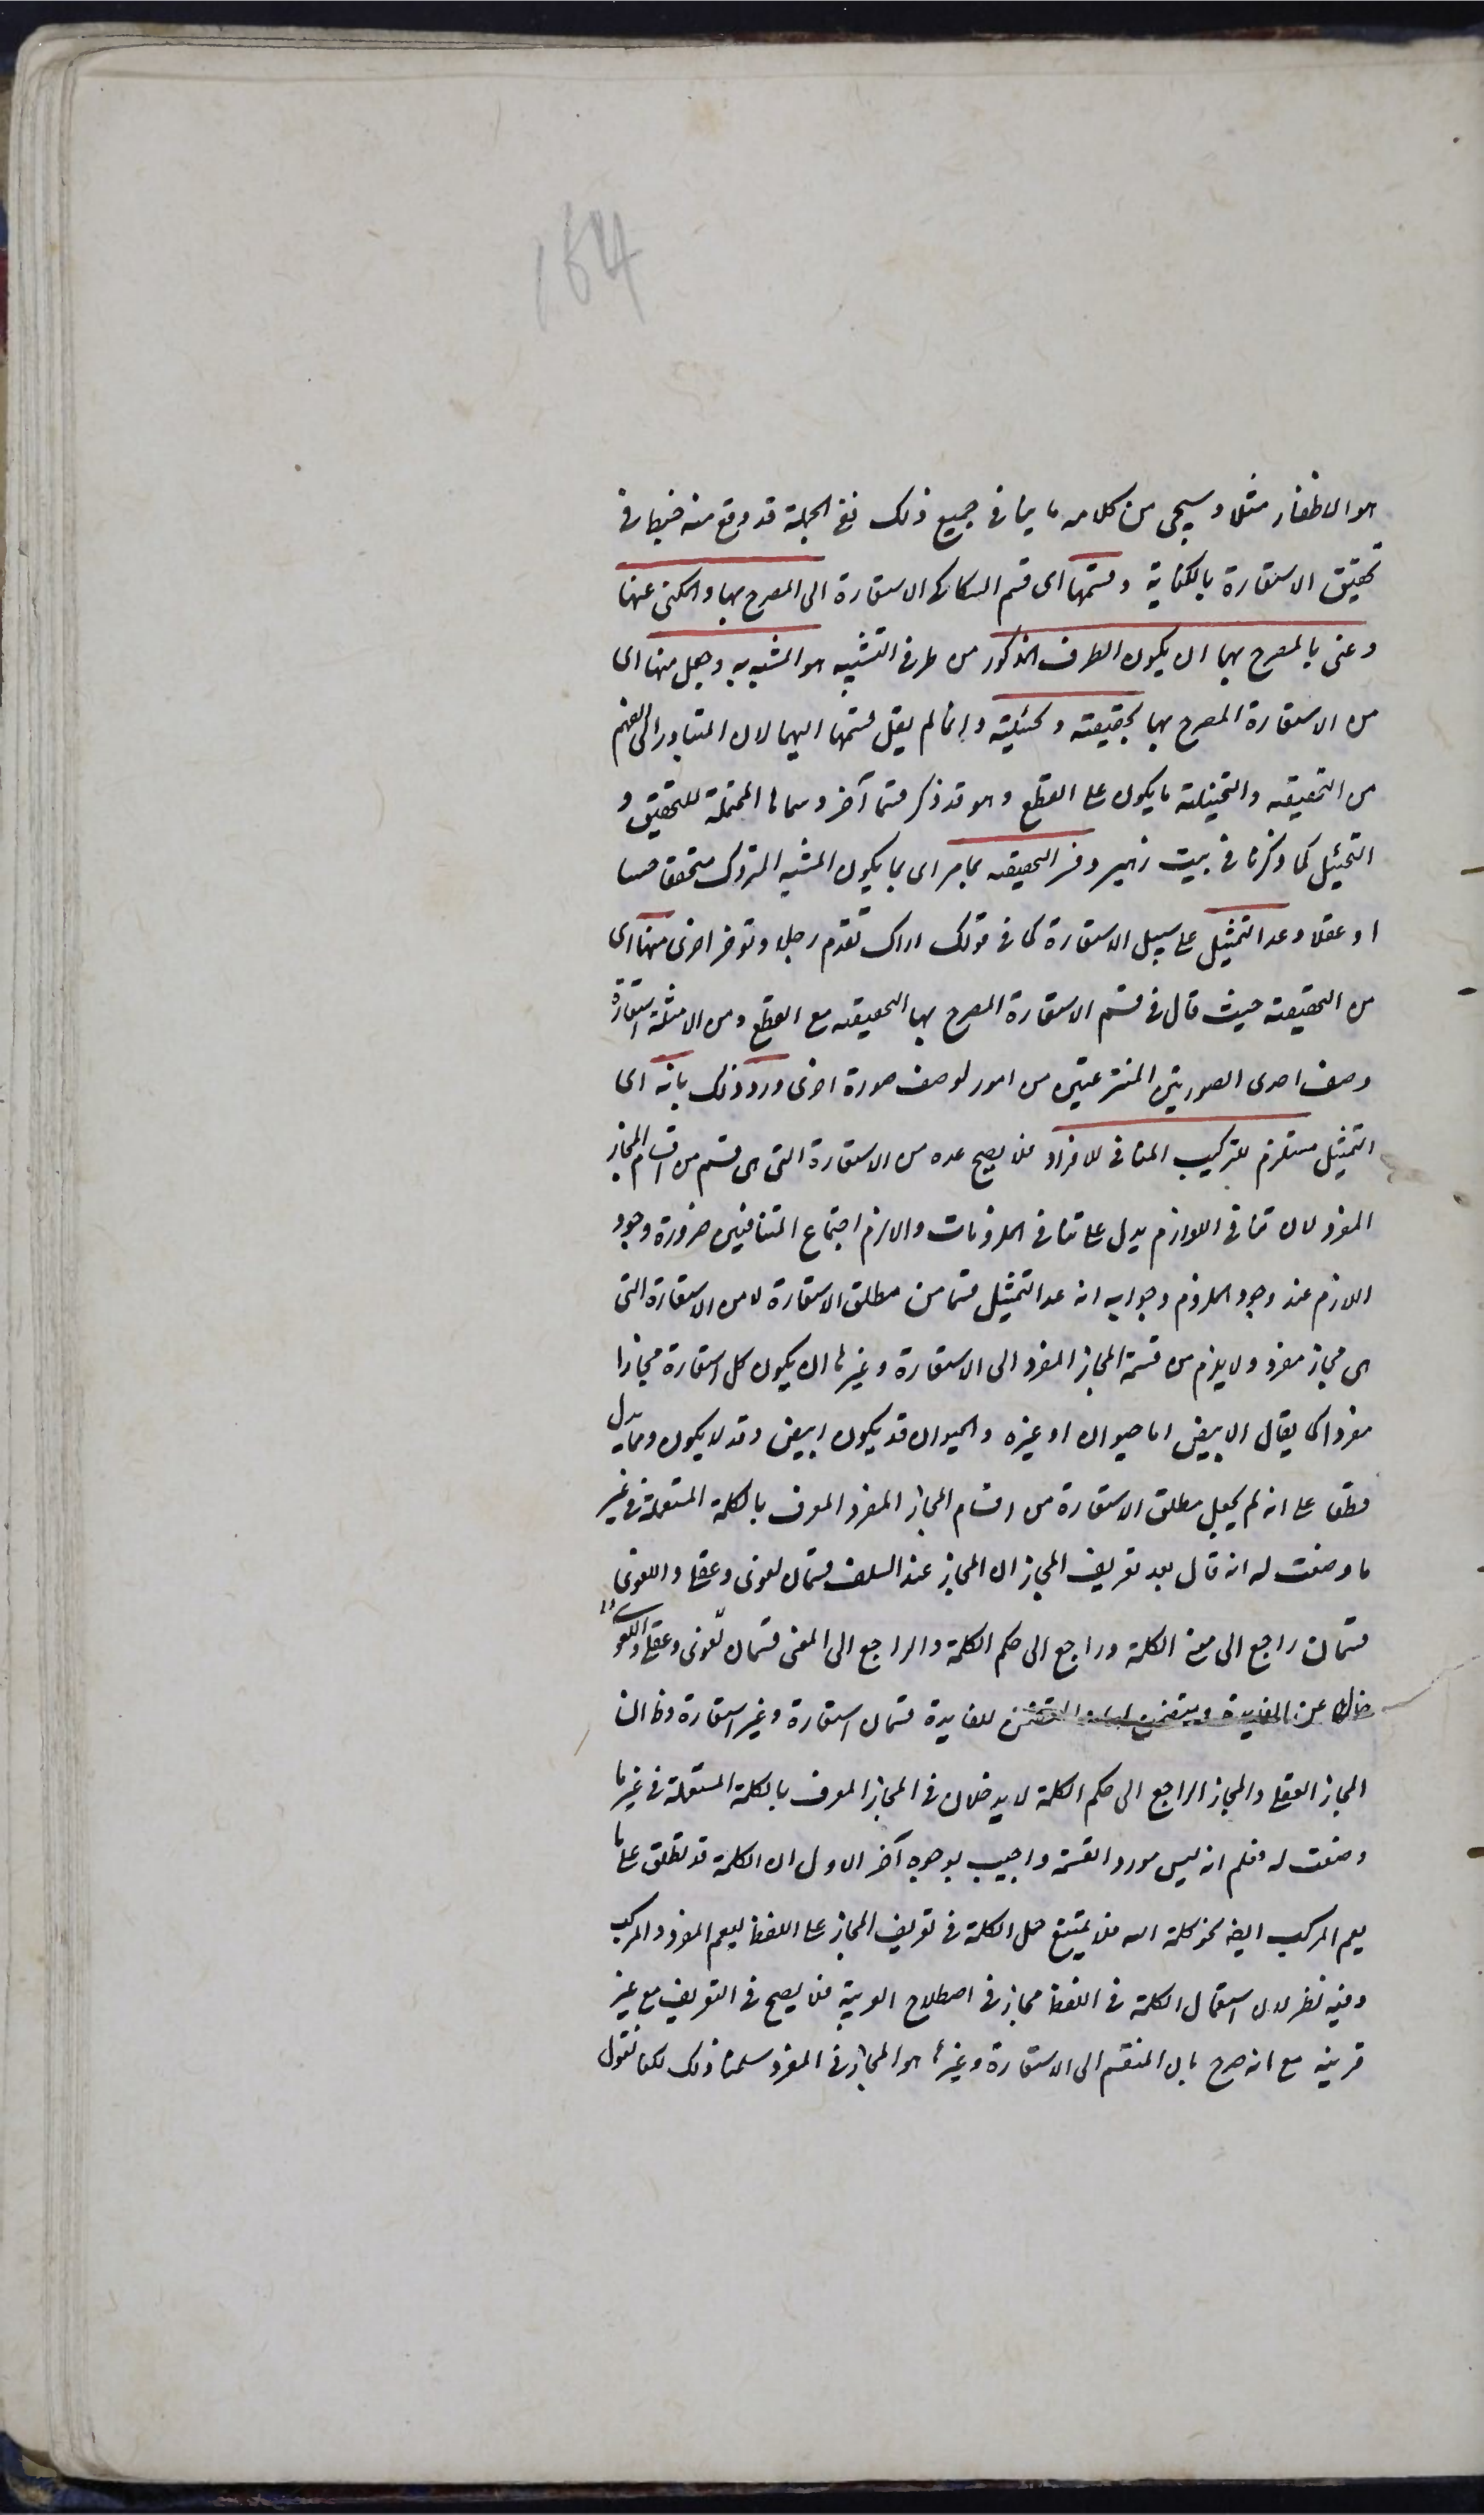 164
هو الاظفار مثلا وسيجى من كلامه ما ينافى جميع ذلك نفى الجملة قد وقع منه خبط فى
تحقيق الاستعارة بالكناية وقسمها اى قسم السكاكى الاستعارة الى المصرح بها والمكنى عنها
وعنى بالمصرح بها ان يكون الطرف المذكور من طرفى التشبيه هو المشبه به وجعل منها اى
من الاستعارة المصرح بها تحقيقية وتخييلية وانما لم يقل قسمها اليهما لان المتبادر الى الفهم
من التحقيقية والتخييلية ما يكون على القطع وهو قد ذكر قسما آخر وسماها المحتملة للتحقيق و
التخييل كما ذكرنا فى بيت زهير وفسر التحقيقية بما مر اى بما يكون المشبه المتروك متحققا حسا
او عقلا وعد التمثيل على سبيل الاستعارة كما فى قولك اراك تقدم رجلا وتؤخر اخرى منها اى
من التحقيقية حيث قال فى قسم الاستعارة المصرح بها التحقيقية مع القطع ومن الامثلة استعارة
وصف احدى الصورتين المنتزعتين من امور لوصف صورة اخرى ورد ذلك بانه اى
التمثيل مستلزم للتركيب المنافى للافراد فلا يصح عده من الاستعارة التى هى قسم من اقسام المجاز
المفرد لان تنافى اللوازم يدل على تنافى الملزومات والا لزم اجتماع المتنافيين ضرورة وجود
اللازم عند وجود الملزوم وجوابه انه عد التمثيل قسما من مطلق الاستعارة لا من الاستعارة التى
هى مجاز مفرد ولا يلزم من قسمة المجاز المفرد الى الاستعارة وغيرها ان يكون كل استعارة مجازا
مفردا كما يقال الابيض اما حيوان او غيره والحيوان قد يكون ابيض وقد لا يكون ومما يدل
قطعا على انه لم يجعل مطلق الاستعارة من اقسام المجاز المفرد المعرف بالكلمة المستعملة فى غير
ما وضعت له انه قال بعد تعريف المجاز ان المجاز عند السلف قسمان لغوى وعقلى واللغوى
قسمان راجع الى معنى الكلمة وراجع الى حكم الكلمة والراجع الى المعنى قسمان لغوى وعقلى واللغوى
خال عن الفايدة ويتضمن لها والمتضمن للفايدة قسمان استعارة وغير استعارة وظاهر ان
المجاز العقلى والمجاز الراجع الى حكم الكلمة لا يدخلان فى المجاز المعرف بالكلمة المستعملة فى غير ما
وضعت له فعلم انه ليس مورد القسمة واجيب بوجوه آخر الاول ان الكلمة قد تطلق على ما
يعم المركب ايضا نحو كلمة الله فلا يمتنع حمل الكلمة فى تعريف المجاز على اللفظ ليعم المفرد والمركب
وفيه نظر لان استعمال الكلمة فى اللفظ مجاز فى اصطلاح العربية فلا يصح فى التعريف مع غير
قرينة مع انه صرح بان المنقسم الى الاستعارة وغيرها هو المجاز فى المفرد سلمنا ذلك لكنا نقول